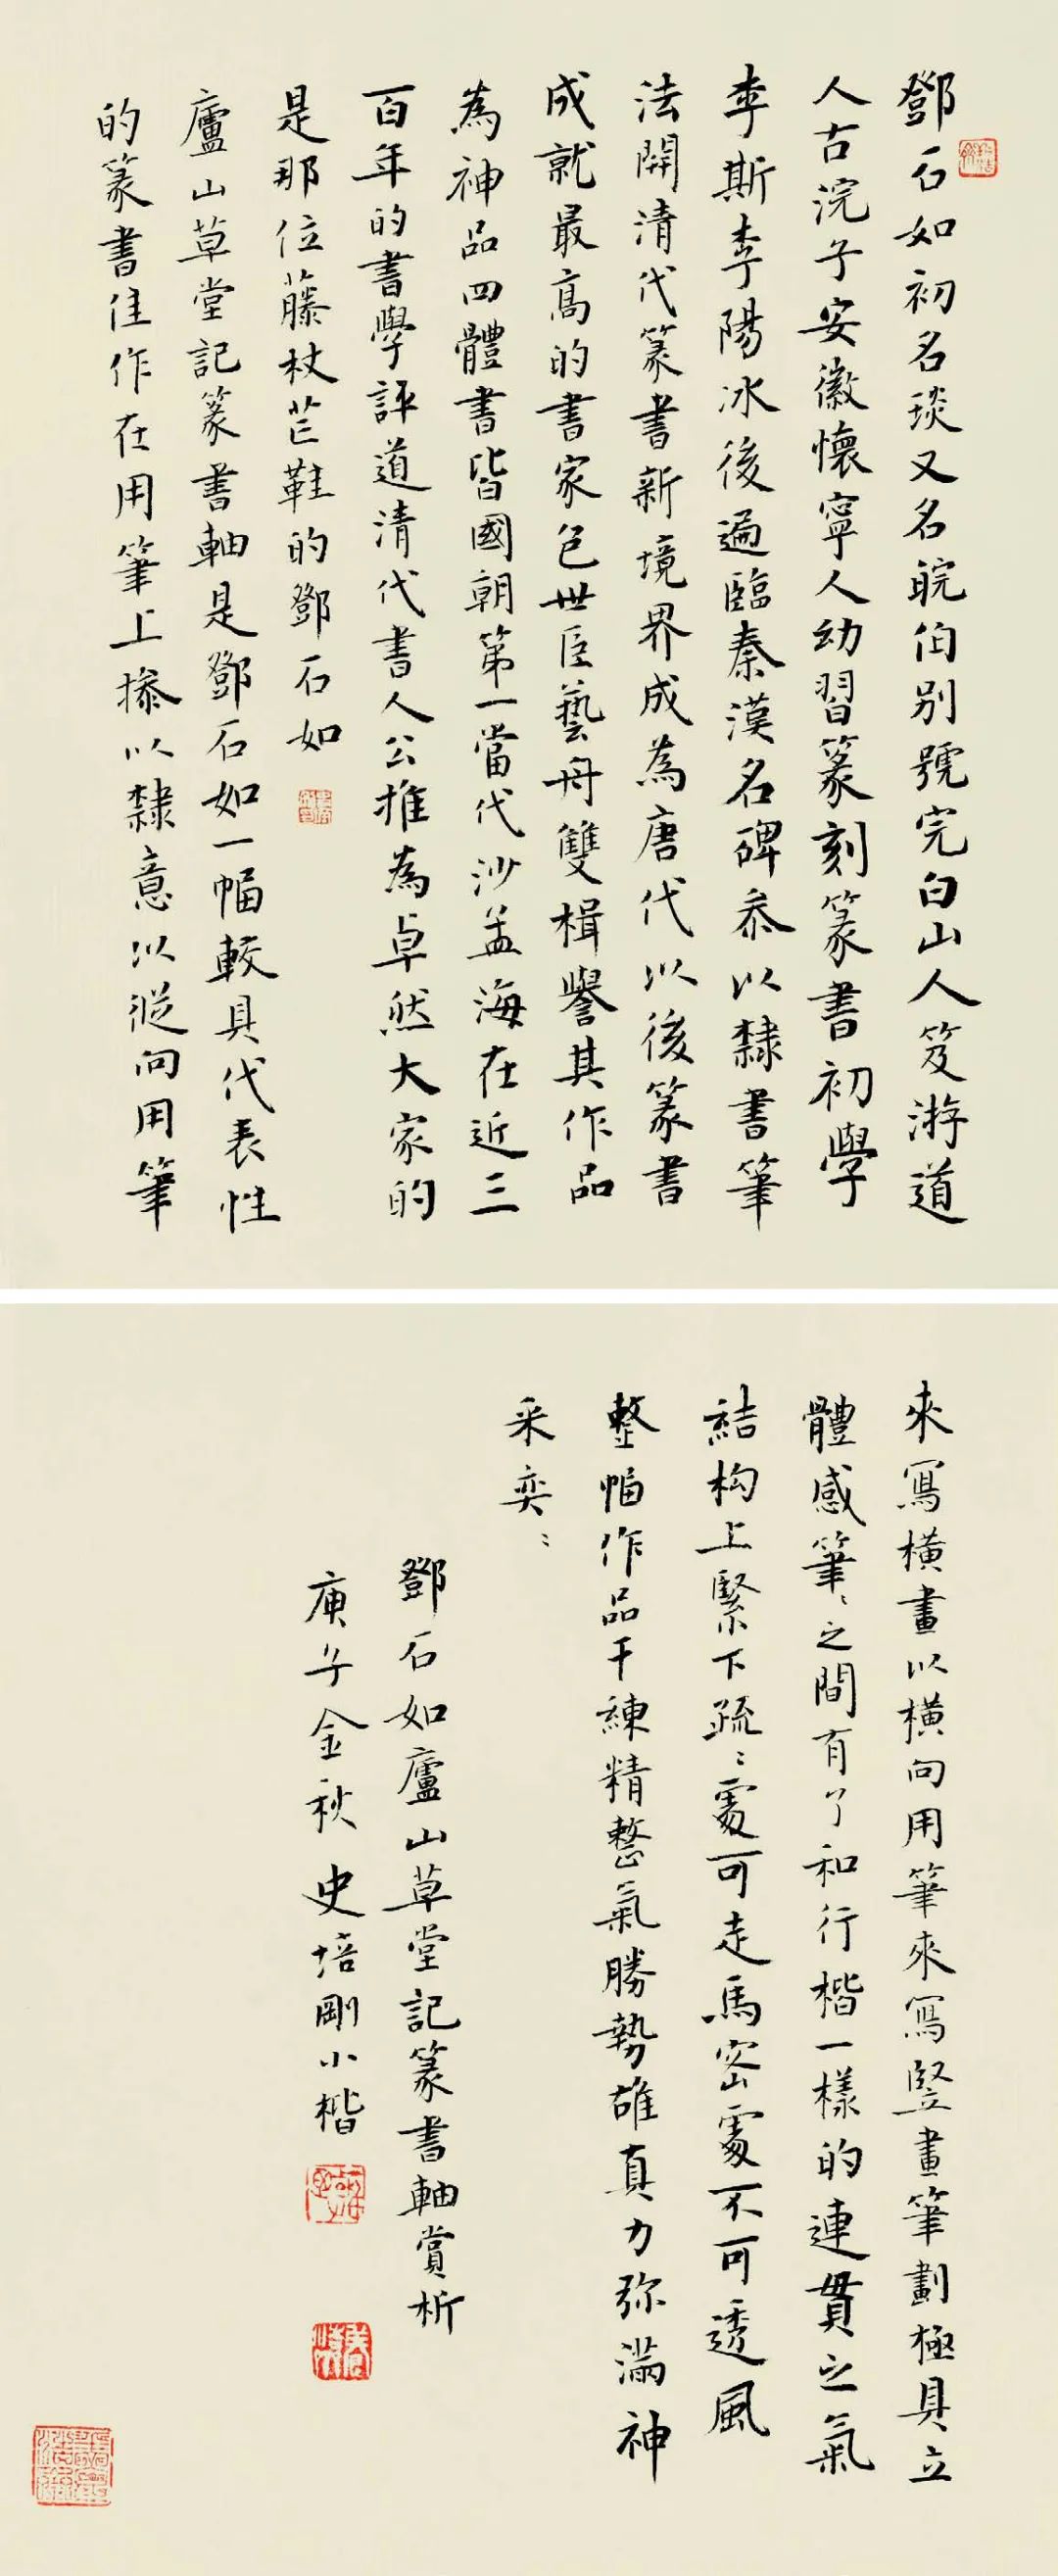 鄧石如初名琰又名皖伯别號完白山人笈游道
人古浣子安徽懷寧人幼習篆刻篆書初學
李斯李陽冰後遍臨秦漢名碑叅以隸書筆
法開清代篆書新境界成為唐代以後篆書
成就最高的書家包世臣藝舟雙楫譽其作品
為神品四體書皆國朝第一當代沙孟海在近三
百年的書學評道清代書人公推為卓然大家的
是那位藤杖芒鞋的鄧石如
廬山草堂記篆書軸是鄧石如一幅較具代表性
的篆書佳作在用筆上摻以隸意以縱向用筆
來寫橫畫以橫向用筆來寫竪畫筆劃極具立
體感筆〻之間有了和行楷一樣的連貫之氣
結构上緊下疏〻處可走馬密處不可透風
整幅作品干練精整氣勝勢雄真力弥滿神
采奕〻
鄧石如廬山草堂記篆書軸賞析
庚子金秋 史培剛小楷